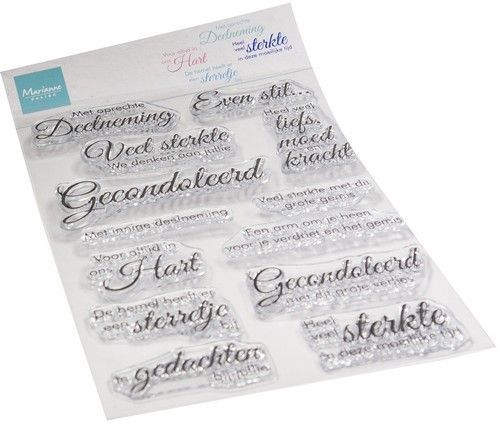 Marianne
design
Met oprechte
Deelneming
Voor altijd in
ons Hart
Heel
veel sterkte
in deze moeilijke tijd
De hemel heeft er
een sterretje
bij
Met oprechte
Deelneming
Even stil...
Veel sterkte
We denken aan jullie
Heel veel
liefs,
moed
en
kracht
Gecondoleerd
Veel sterkte met dit
grote gemis
Met innige deelneming
Een arm om je heen
voor je verdriet en het gemis
Voor altijd in
ons Hart
Gecondoleerd
met dit grote verlies
De hemel heeft er
een sterretje
bij
Heel
veel sterkte
in deze moeilijke tijd
In gedachten
bij jullie